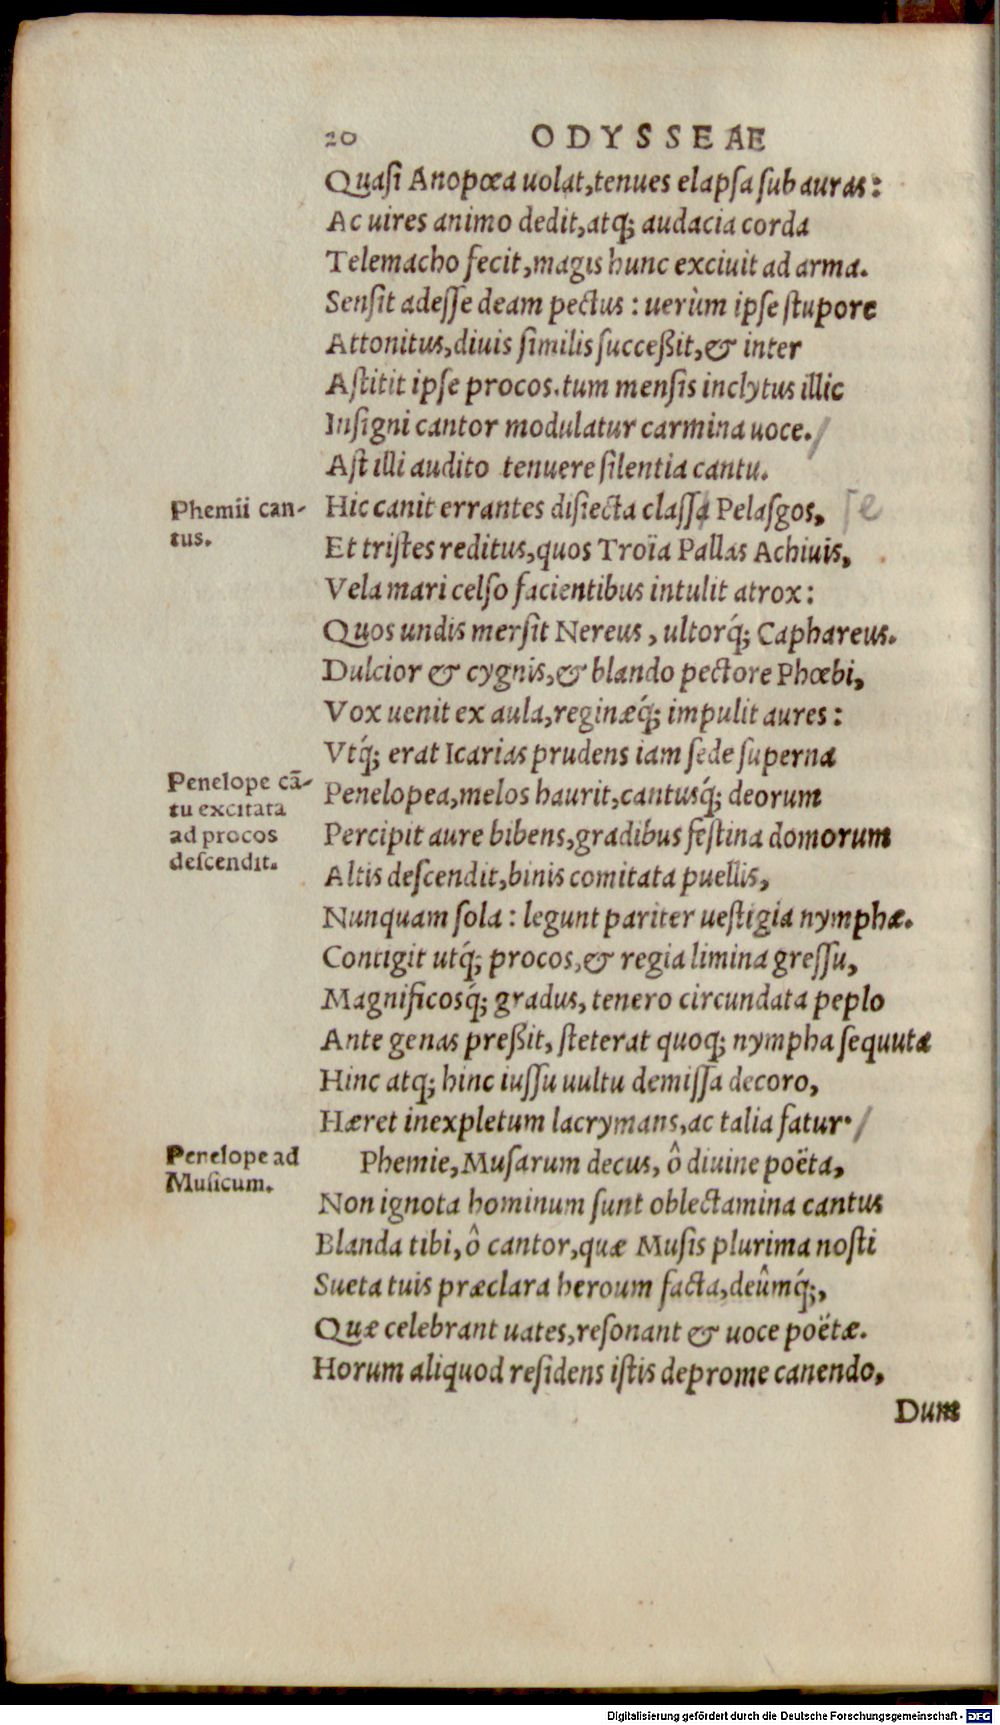 20 ODYSSEAE
Quaſi Anopœa uolat, tenues elapſa ſub auras:
Ac uires animo dedit, atq; audacia corda
Telemacho fecit, magis hunc exciuit ad arma.
Senſit adeſſe deam pectus: uerùm ipſe ſtupore
Attonitus, diuis ſimilis ſucceßit, & inter
Aſtitit ipſe procos. tum menſis inclytus illic
Inſigni cantor modulatur carmina uoce. /
Aſt illi audito tenuere ſilentia cantu.
Phemii can-
tus.
Hic canit errantes diſiecta claſſa Pelaſgos, se
Et triſtes reditus, quos Troïa Pallas Achiuis,
Vela mari celſo facientibus intulit atrox:
Quos undis merſit Nereus, ultorq́; Caphareus.
Dulcior & cygnis, & blando pectore Phœbi,
Vox uenit ex aula, reginæq́; impulit aures:
Vtq́; erat Icarias prudens iam ſede ſuperna
Penelope cã-
tu excitata
ad procos
deſcendit.
Penelopea, melos haurit, cantusq́; deorum
Percipit aure bibens, gradibus feſtina domorum
Altis deſcendit, binis comitata puellis,
Nunquam ſola: legunt pariter ueſtigia nymphæ.
Contigit utq́; procos, & regia limina greſſu,
Magnificosq́; gradus, tenero circundata peplo
Ante genas preßit, ſteterat quoq; nympha ſequuta
Hinc atq; hinc iuſſu uultu demiſſa decoro,
Hæret inexpletum lacrymans, ac talia fatur. /
Penelope ad
Muſicum.
Phemie, Muſarum decus, ô diuine poëta,
Non ignota hominum ſunt oblectamina cantus
Blanda tibi, ô cantor, quæ Muſis plurima noſti
Sueta tuis præclara heroum facta, deûmq́;,
Quæ celebrant uates, reſonant & uoce poëtæ.
Horum aliquod reſidens iſtis deprome canendo,
Dum
Digitalisierung gefördert durch die Deutsche Forschungsgemeinschaft - DFG